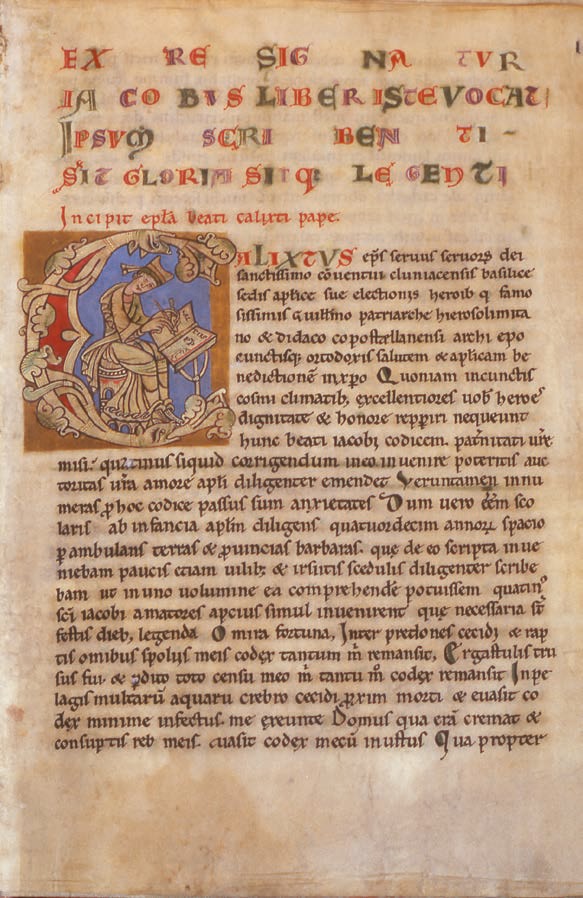 EX RE SIGNATUR
IACOBUS LIBER ISTE VOCATUR
IPSUM SCRIBENTI-
SIT GLORIA SITQ; LEGENTI
Incipit epła beati calixti pape.
CALIXTUS ep̄s seruus seruor̄ dei
sanctissimo cōuentui cluniacensis basilice
sedis ap̄lice sue electionis heroib; q; famo
sissimis guillm̄o patriarche hierosolimita
no & didaco cōpostellanensi archi ep̄o
cunctisq; ortodoxis salutem & ap̄licam be
nedictionē in xp̄o Quoniam in cunctis
cosmi climatib; excellentiores uob̄ heroes
dignitate & honore repp̄iri nequeunt
hunc beati iacobi codicem. pat̄nitati ur̄e
misi. quatinus siquid corrigendum in eo inuenire poteritis auc
toritas ur̄a amore ap̄li diligenter emendet Veruntamen innu
meras p̄ hoc codice passus sum anxietates Dum uero eēm sco
laris ab infancia ap̄lm diligens quatuordecim annor̄ spacio
p̄ambulans terras & p̄uincias barbaras. que de eo scripta inue
niebam paucis etiam uilib; & irsutis scedulis diligenter scribe
bam ut in uno uolumine ea comprehendē potuissem quatin;
sc̄i iacobi amatores apcius simul inuenirent que necessaria st̄
festis dieb; legenda O mira fortuna, Inter predones cecidi & rap
tis omībus spoliis meis codex tantum m̄ remansit, Ergastulis tru
sus fui. & p̄dito toto censu meo m̄ tantū m̄ codex remansit In pe
lagis multarū aquarū crebro cecidi p̄xim; morti & euasit co
dex minime infectus. me exeunte Domus qua erā cremat̄ &
consūptis reb; meis. euasit codex mecū inustus Qua propter